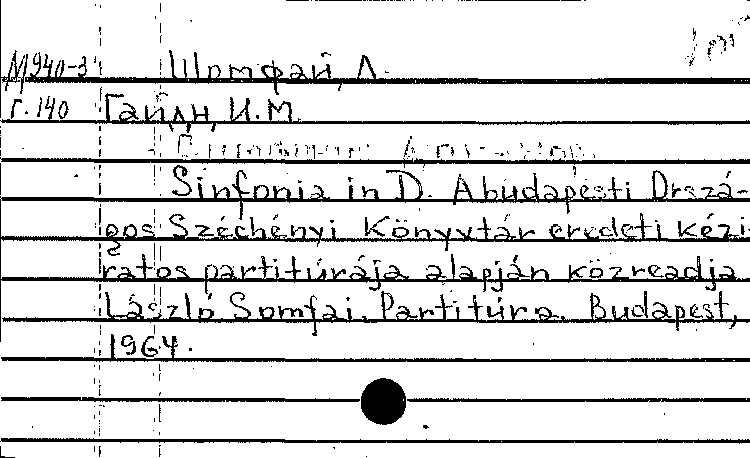 М940-3 Шомфай, Л.
Г.140 Гайдн, И.М.
Sinfonia in D. A budapesti Orszá-
gos Széchényi Könyvtár eredeti kézi-
ratos partitúrája alapján közreadja
László Somfai. Partitúra. Budapest,
1964.